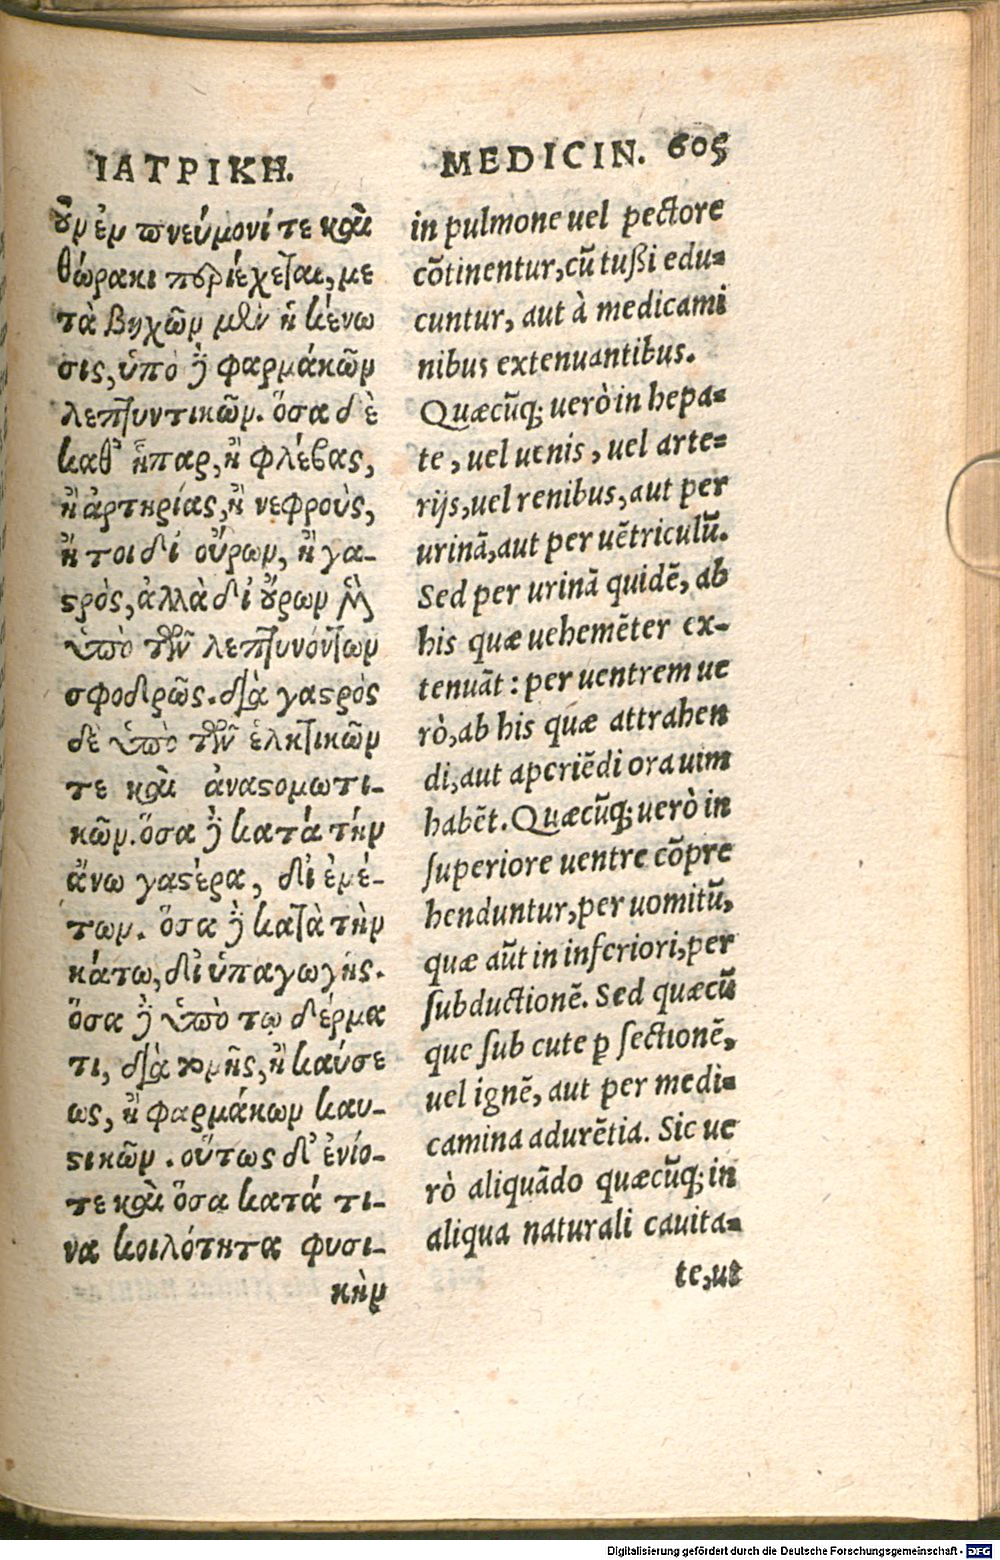 ΙΑΤΡΙΚΗ.
οὖν ἐν πνεύμονί τε καὶ
θώρακι περιέχεται, με
τὰ βηχῶν μὲν ἡ κένω
σις, ὑπὸ δὲ φαρμάκων
λεπτυντικῶν. ὅσα δὲ
καθ᾽ ἧπαρ, ἢ φλέβας,
ἢ ἀρτηρίας, ἢ νεφροὺς,
ἤ τοι δι οὔρων, ἢ γα-
στρὸς, ἀλλὰ δι οὔρων μὲν
ὑπὸ τῶν λεπτυνόντων
σφοδρῶς. διὰ γαστρὸς
δὲ ὑπὸ τῶν ἑλκτικῶν
τε καὶ ἀναστομωτι-
κῶν. ὅσα δὲ κατὰ τὴν
ἄνω γαστέρα, δι ἐμέ-
των. ὅσα δὲ κατὰ τὴν
κάτω, δι ὑπαγωγῆς.
ὅσα δὲ ὑπὸ τῳ δέρμα
τι, διὰ τομῆς, ἢ καύσε
ως, ἢ φαρμάκων καυ-
στικῶν. οὕτως δ᾽ ἐνίο-
τε καὶ ὅσα κατά τι-
να κοιλότητα φυσι-
κὴν
MEDICIN. 605
in pulmone uel pectore
cōtinentur, cū tußi edu=
cuntur, aut à medicami
nibus extenuantibus.
Quæcūq; uerò in hepa=
te, uel uenis, uel arte=
rijs, uel renibus, aut per
urinā, aut per uētriculū.
Sed per urinā quidē, ab
his quæ uehemēter ex-
tenuāt: per uentrem ue
rò, ab his quæ attrahen
di, aut aperiēdi ora uim
habēt. Quæcūq; uerò in
ſuperiore uentre cōpre
henduntur, per uomitū,
quæ aūt in inferiori, per
ſubductionē. Sed quæcū
que ſub cute ꝑ ſectionē,
uel ignē, aut per medi=
camina adurētia. Sic ue
rò aliquādo quæcūq; in
aliqua naturali cauita=
te, ut
Digitalisierung gefördert durch die Deutsche Forschungsgemeinschaft - DFG